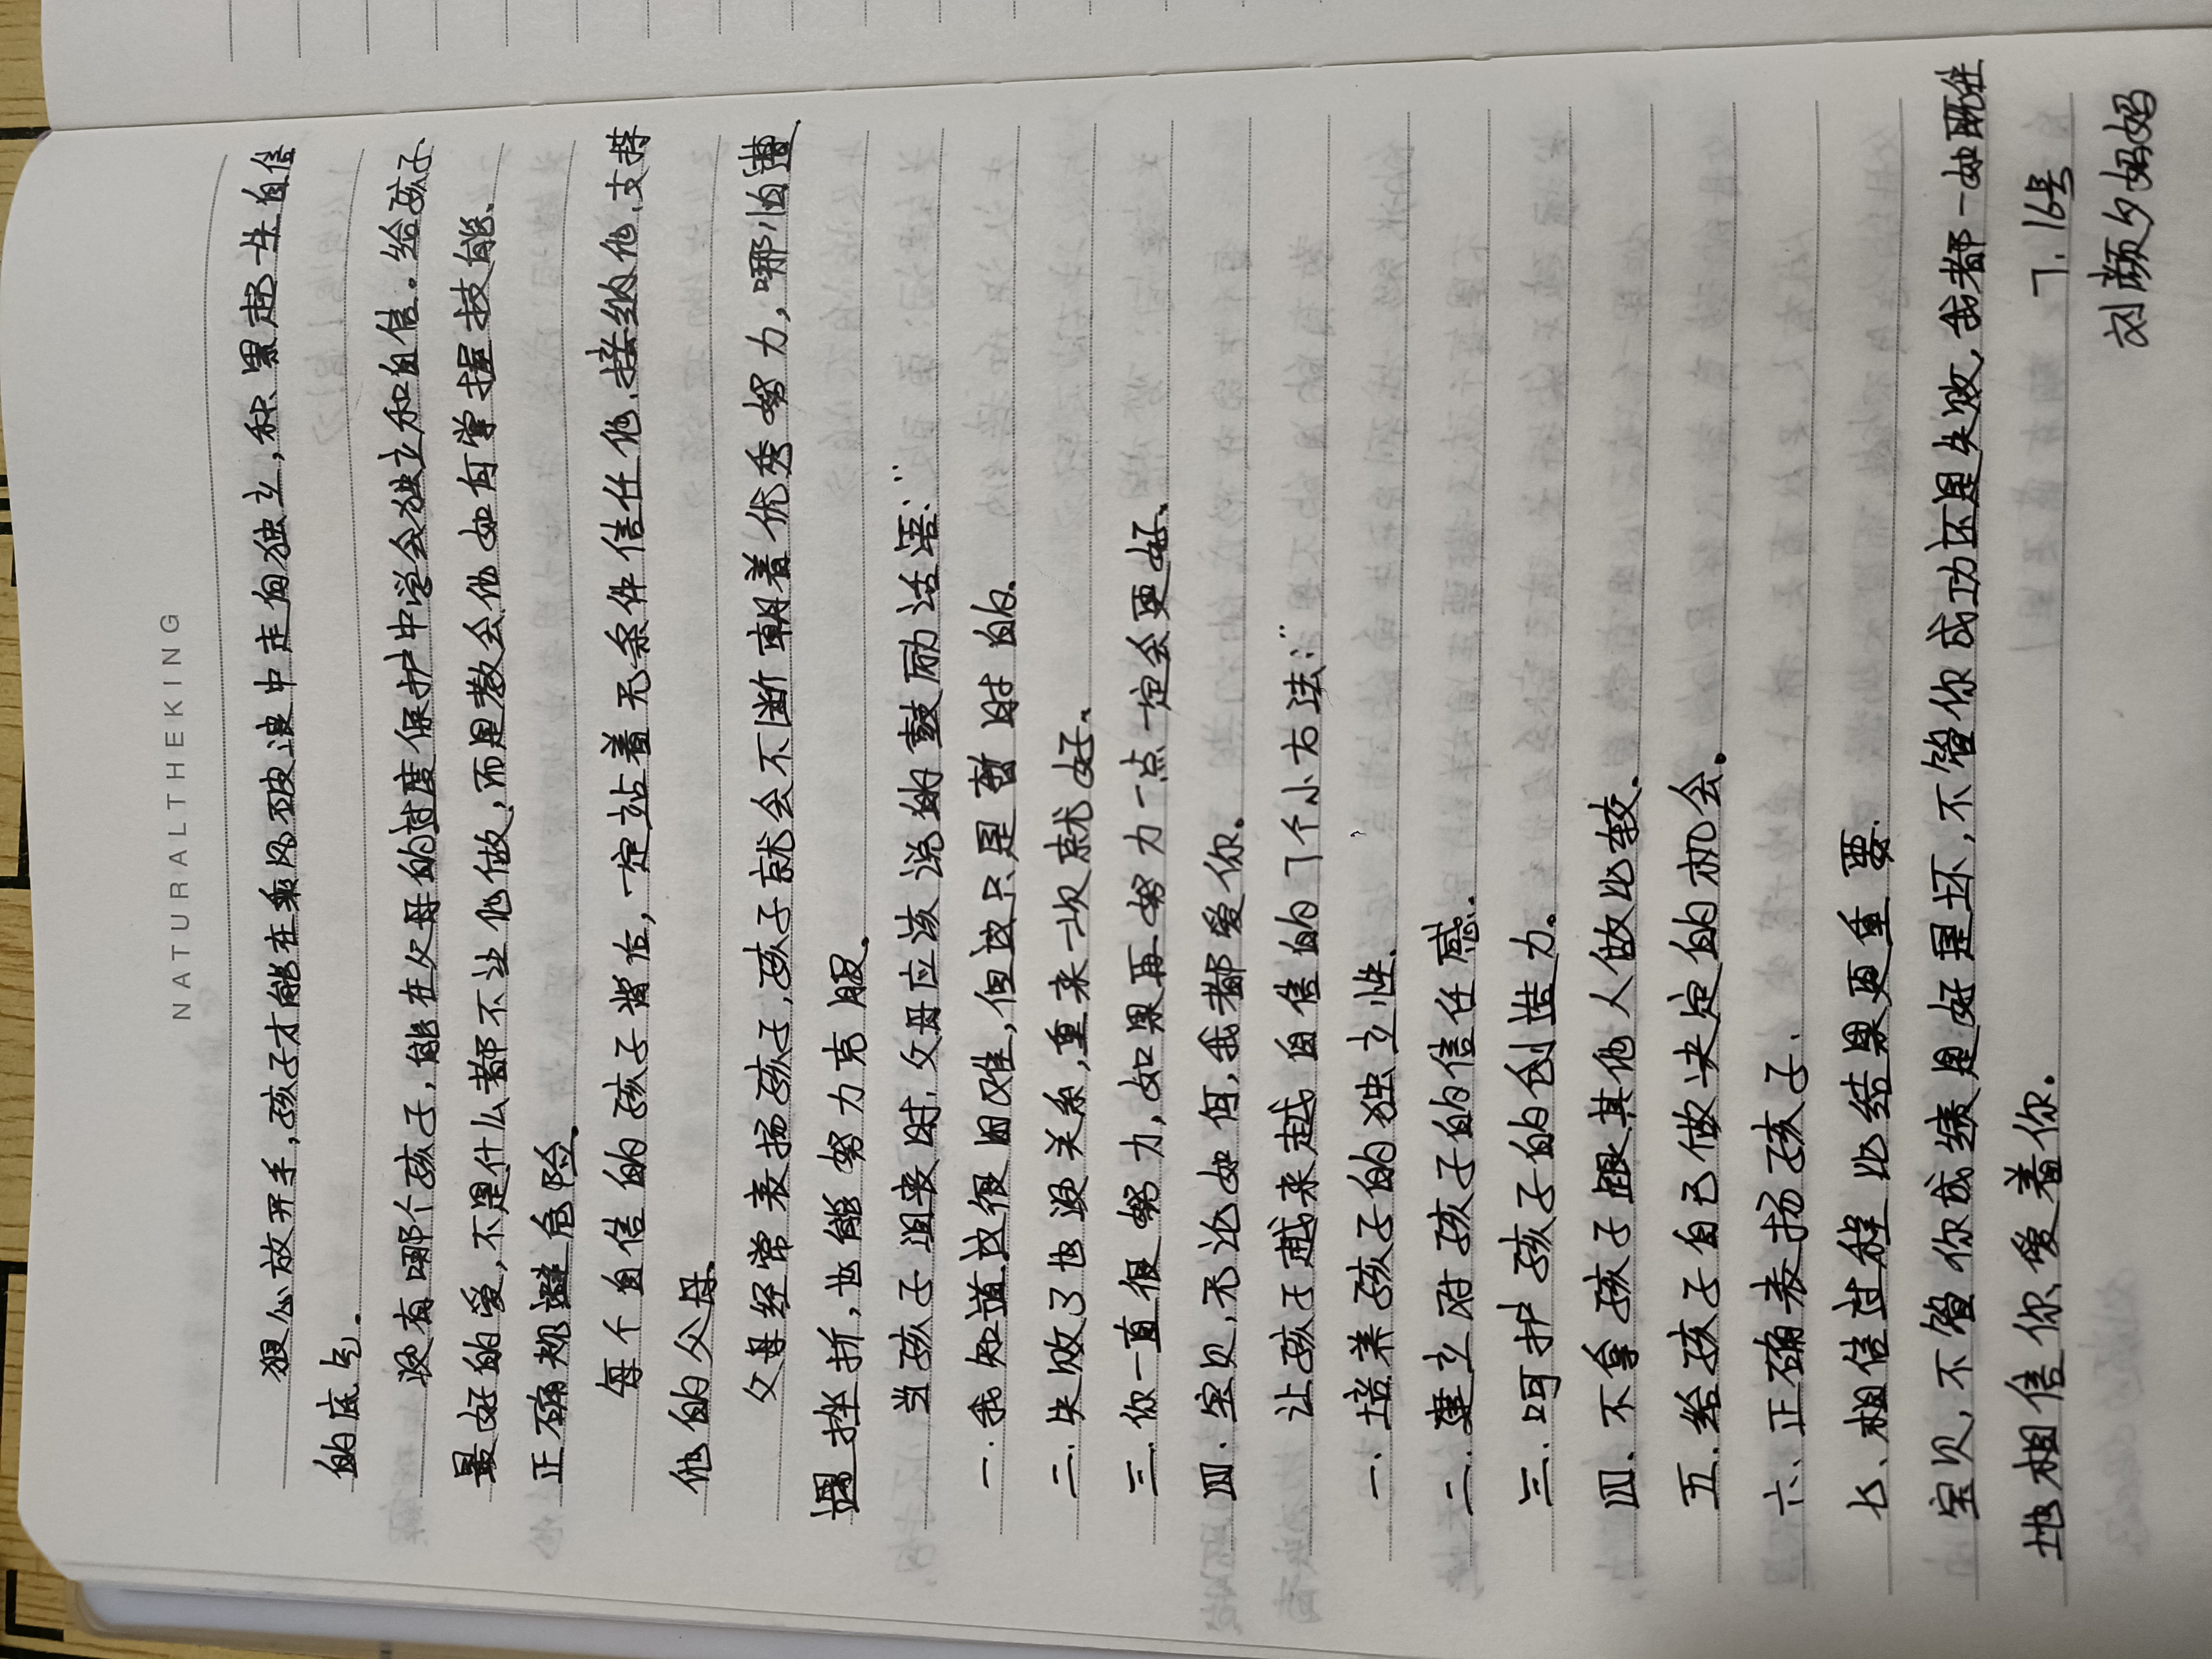 NATURALTHEKING
狠心放开手,孩子才能在乘风破浪中走向独立,积累起一生自信
的底气。
没有哪个孩子,能在父母的过度保护中学会独立和自信。给孩子
最好的爱,不是什么都不让他做,而是教会他如何掌握技能、
正确规避危险。
每个自信的孩子背后,一定站着无条件信任他、接纳他、支持
他的父母。
父母经常表扬孩子,孩子就会不断朝着优秀努力,哪怕遭
遇挫折,也能努力克服。
当孩子沮丧时,父母应该说的鼓励话语:“
一.我知道这很困难,但这只是暂时的.
二.失败了也没关系,重来一次就好。
三.你一直很努力,如果再努力一点一定会更好。
四.宝贝,无论如何,我都爱你.
让孩子越来越自信的7个小方法:“
一.培养孩子的独立性.
二.建立对孩子的信任感.
三.呵护孩子的创造力.
四.不拿孩子跟其他人做比较.
五.给孩子自己做决定的机会。
六、正确表扬孩子.
七、相信过程比结果更重要.
宝贝,不管你成绩是好是坏,不管你成功还是失败,我都一如既往
地相信你、爱着你.
7.16号
刘颜夕妈妈